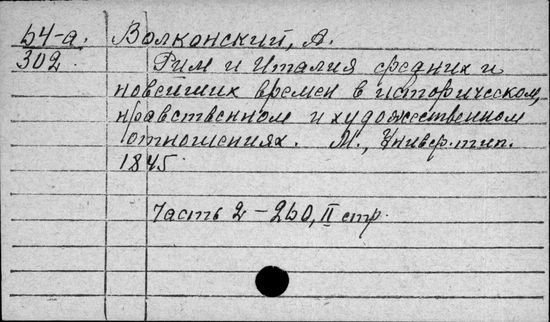 54-а. Волконский, А.
302. Рим и Италия средних и
новейших времен в историческом,
нравственном и художественном
отношениях. М., Универ. тип.
1845.
Часть 2 – 260, II стр.